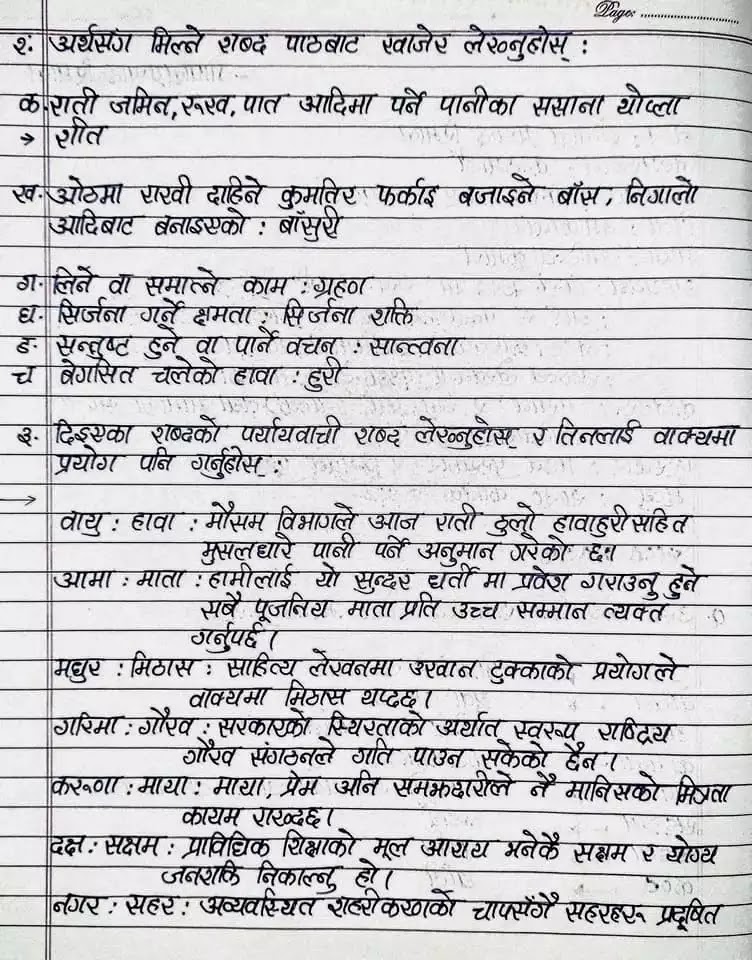 Page:
२. अर्थसँग मिल्ने शब्द पाठबाट खोजेर लेख्नुहोस् :
क. राती जमिन, रूख, पात आदिमा पर्ने पानीका ससाना थोप्ला
→ शीत
ख. ओठमा राखी दाहिने कुमतिर फर्काइ बजाइने बाँस, निगालो
आदिबाट बनाइएको : बाँसुरी
ग. लिने वा समात्ने काम : ग्रहण
घ. सिर्जना गर्ने क्षमता : सिर्जना शक्ति
ङ. सन्तुष्ट हुने वा पार्ने वचन : सान्त्वना
च बेगसित चलेको हावा : हुरी
३. दिइएका शब्दको पर्यायवाची शब्द लेख्नुहोस् र तिनलाई वाक्यमा
प्रयोग पनि गर्नुहोस् :
→
वायु : हावा : मौसम विभागले आज राती ठुलो हावाहुरी सहित
मुसलधारे पानी पर्ने अनुमान गरेको छ।
आमा : माता : हामीलाई यो सुन्दर धर्ती मा प्रवेश गराउनु हुने
सबै पूजनिय माता प्रति उच्च सम्मान व्यक्त
गर्नुपर्छ।
मधुर : मिठास : साहित्य लेखनमा उखान टुक्काको प्रयोगले
वाक्यमा मिठास थप्दछ।
गरिमा : गौरव : सरकारको स्थिरताको अर्थात स्वरूप राष्ट्रिय
गौरव संगठनले गति पाउन सकेको छैन।
करूणा : माया : माया, प्रेम अनि समझदारीले नै मानिसको मित्रता
कायम राख्दछ।
दक्ष : सक्षम : प्राविधिक शिक्षाको मूल आशय भनेकै सक्षम र योग्य
जनशक्ति निकाल्नु हो।
नगर : सहर : अव्यवस्थित शहरीकरणको चापसँगै सहरहरू प्रदूषित